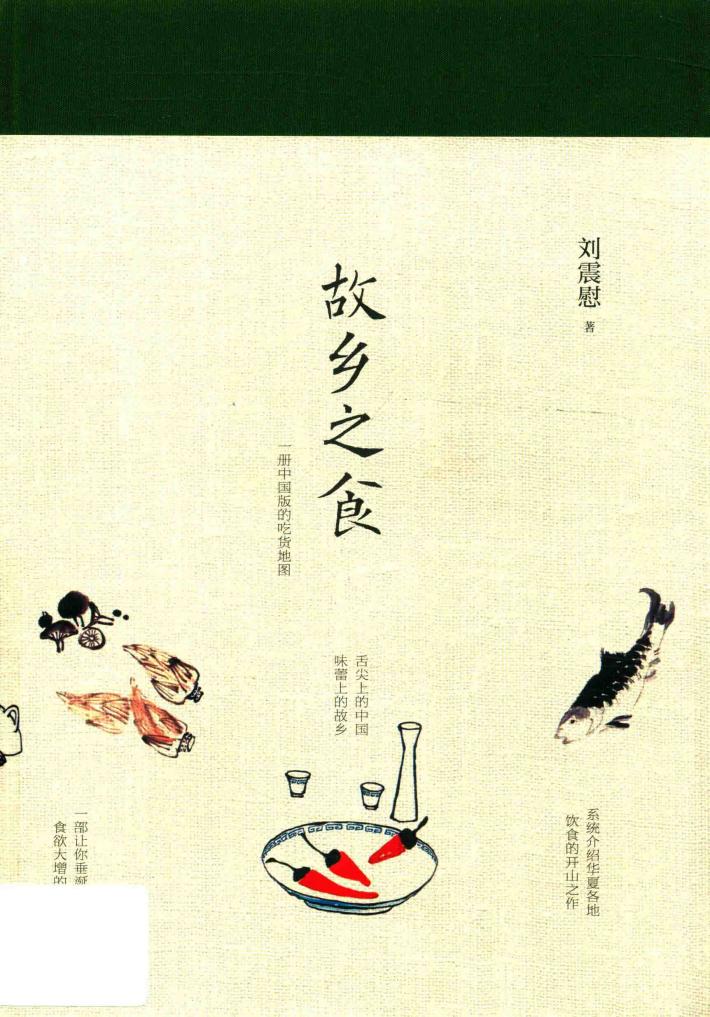 刘震慰 著
故乡之食
一册中国版的吃货地图
舌尖上的中国
味蕾上的故乡
系统介绍华夏各地
饮食的开山之作
一部让你垂涎
食欲大增的